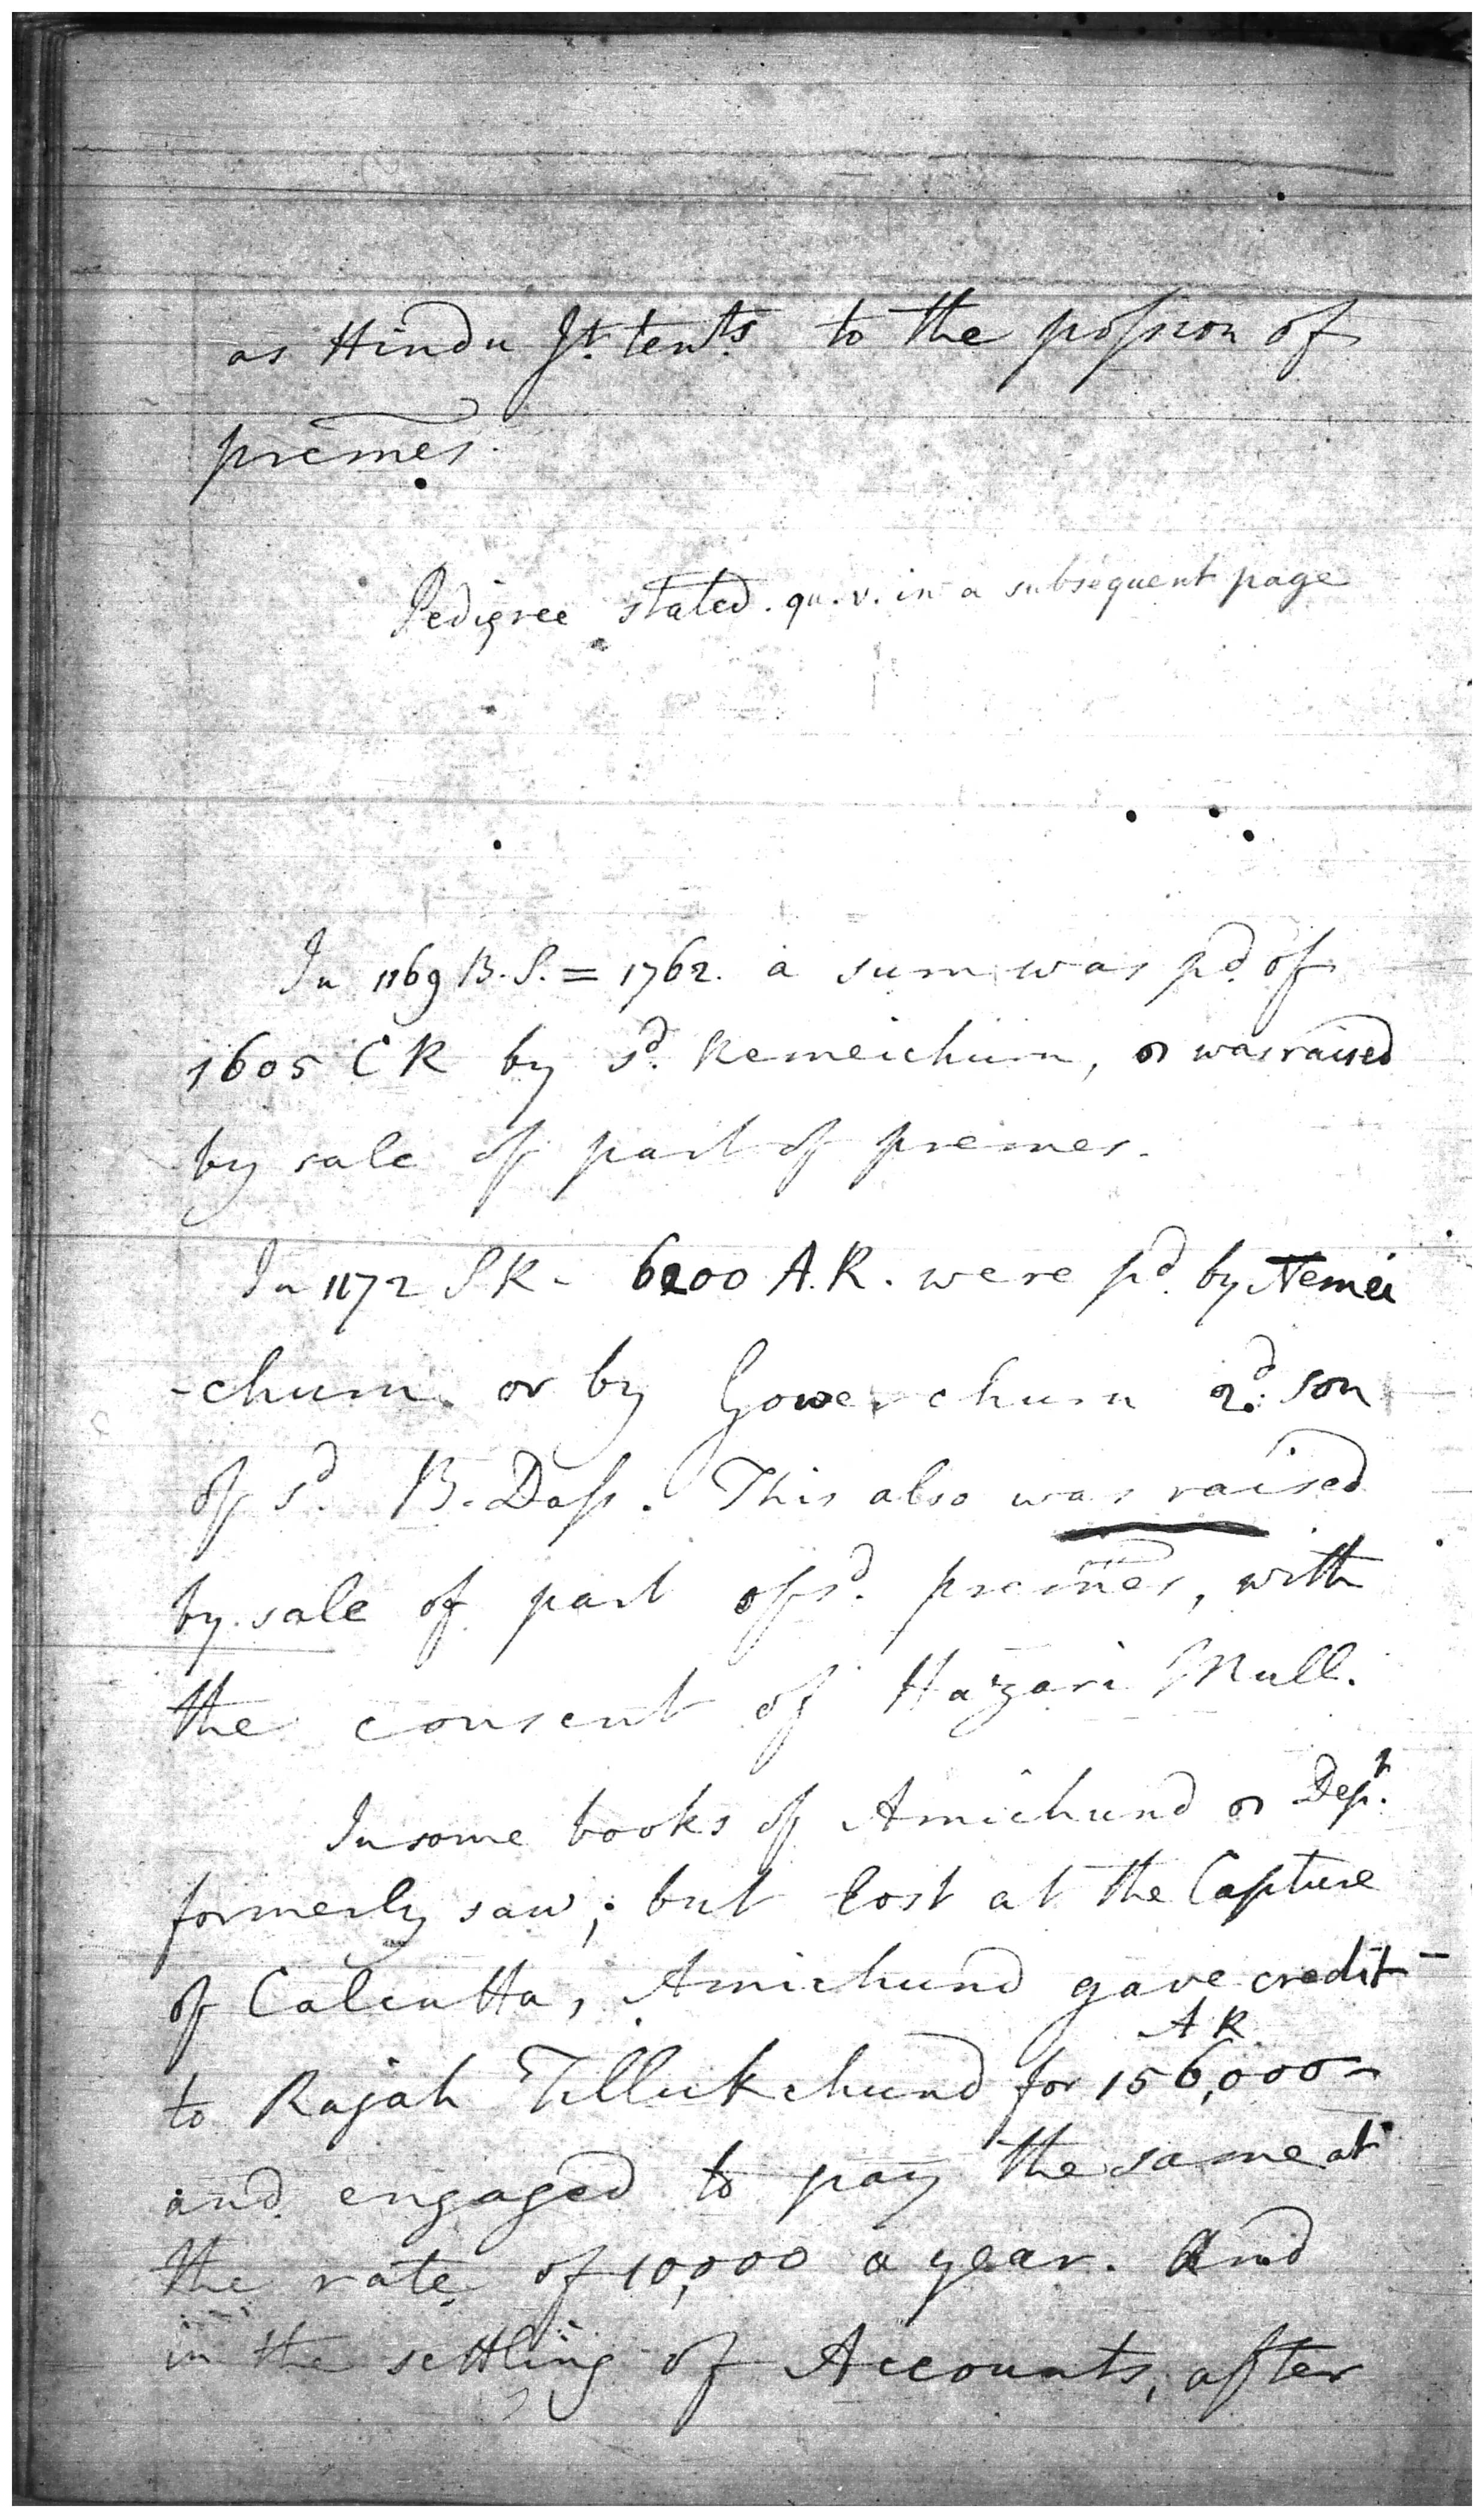 as Hindu Jt. tents. to the possion of
premes.
Pedigree stated. qu. v. in a subsequent page
In 1169 B.S. = 1762. a sum was pd. of
1605 CR by sd. Remeichurn, or was raised
by sale of part of premes.
In 1172 SR - 6200 A.R. were pd. by Nemei
-churn or by Gowerchurn 2d. son
of sd. B. Dass. This also was raised
by sale of part of sd. premes, with
the consent of Hazari Mull.
In some books of Amichund
formerly saw; but lost at the Capture
of Calcutta, Amichund gave credit -
A R
to Rajah Tilluckchund for 156,000 -
and engaged to pay the same at
the rate of 10,000 a year. And
in the settling of Accounts, after